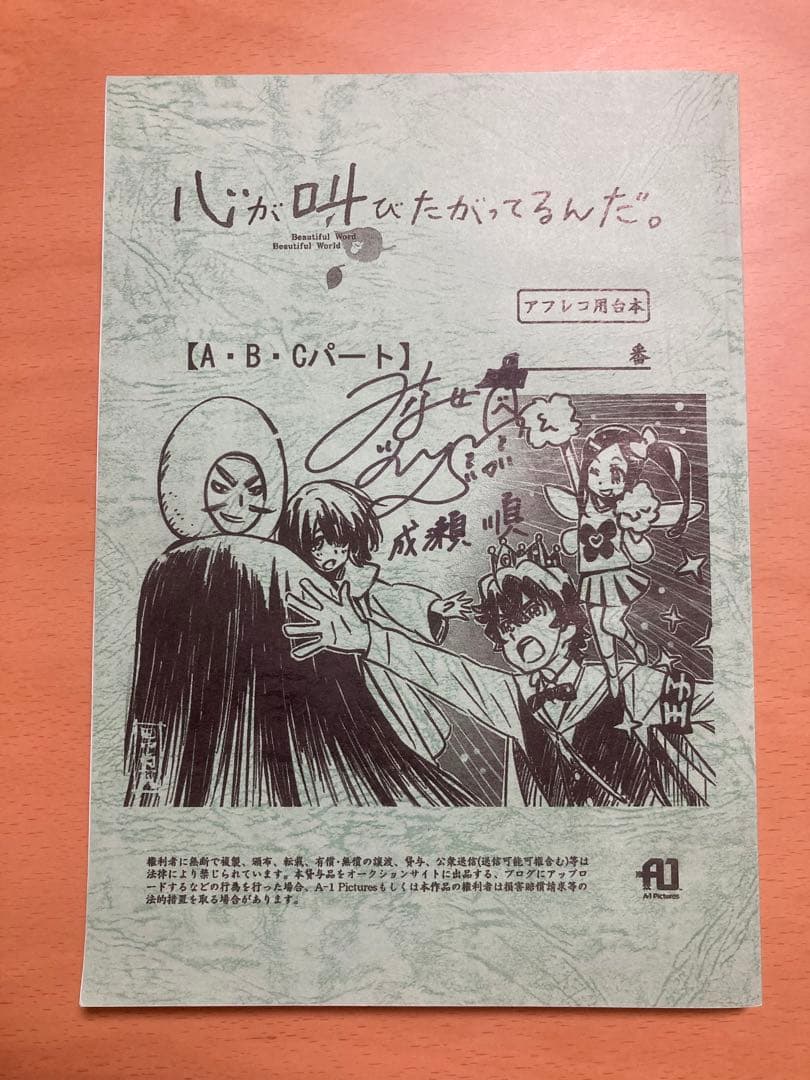 心が叫びたがってるんだ。
Beautiful Word
Beautiful World
アフレコ用台本
【A・B・Cパート】
番
成瀬 順
王子
権利者に無断で複製、頒布、転載、有償・無償の譲渡、貸与、公衆送信(送信可能可権含む)等は
法律により禁じられています。本貸与品をオークションサイトに出品する、ブログにアップロ
ードするなどの行為を行った場合、A-1 Picturesもしくは本作品の権利者は損害賠償請求等の
法的措置を取る場合があります。
A-1 Pictures